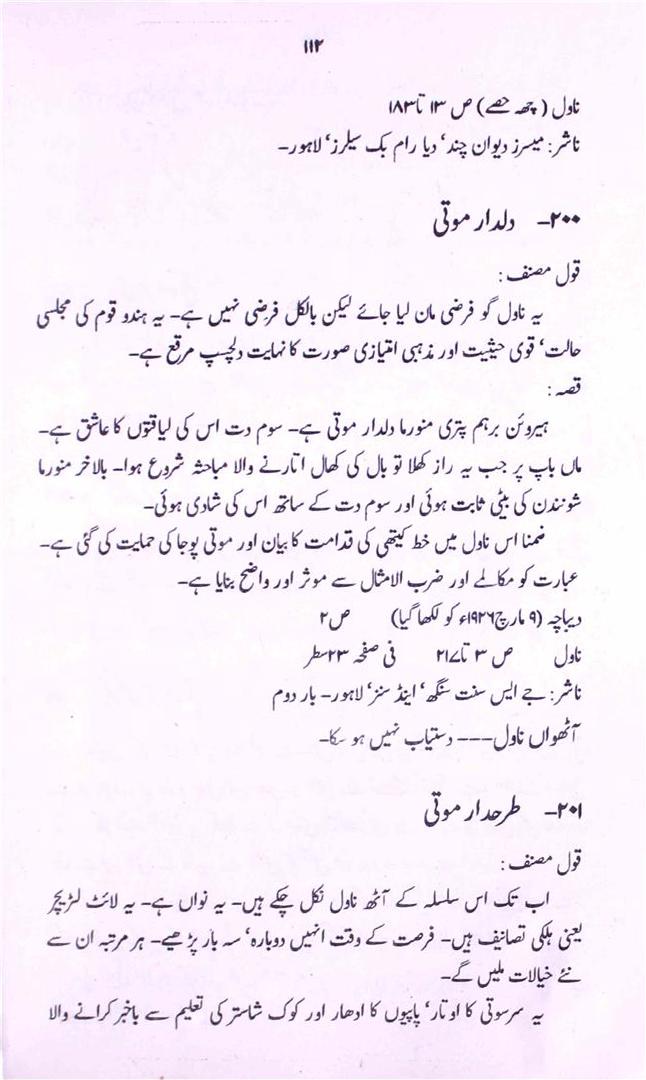 ۱۱۲
ناول (چھ حصے) ص ۱۳ تا ۱۸۳
ناشر: میسرز دیوان چند، دیا رام بک سیلرز، لاہور۔
۲۰۰۔ دلدار موتی
قول مصنف:
یہ ناول گو فرضی مان لیا جائے لیکن بالکل فرضی نہیں ہے۔ یہ ہندو قوم کی مجلسی
حالت، قوی حیثیت اور مذہبی امتیازی صورت کا نہایت دلچسپ مرقع ہے۔
قصہ:
ہیروئن برہم پتری منورما دلدار موتی ہے۔ سوم دت اس کی لیاقتوں کا عاشق ہے۔
ماں باپ پر جب یہ راز کھلا تو بال کی کھال اتارنے والا مباحثہ شروع ہوا۔ بالاخر منورما
شونندن کی بیٹی ثابت ہوئی اور سوم دت کے ساتھ اس کی شادی ہوئی۔
ضمنا اس ناول میں خط کیتھی کی قدامت کا بیان اور موتی پوجا کی حمایت کی گئی ہے۔
عبارت کو مکالمے اور ضرب الامثال سے موثر اور واضح بنایا ہے۔
دیباچہ (۹ مارچ ۱۹۲۶ء کو لکھا گیا) ص ۲
ناول ص ۳ تا ۲۱۷ فی صفحہ ۲۳ سطر
ناشر: جے ایس سنت سنگھ، اینڈ سنز، لاہور۔ بار دوم
آٹھواں ناول۔۔۔ دستیاب نہیں ہو سکا۔
۲۰۱۔ طرحدار موتی
قول مصنف:
اب تک اس سلسلہ کے آٹھ ناول نکل چکے ہیں۔ یہ نواں ہے۔ یہ لائٹ لٹریچر
یعنی ہلکی تصانیف ہیں۔ فرصت کے وقت انہیں دوبارہ، سہ بار پڑھیے۔ ہر مرتبہ ان سے
نئے خیالات ملیں گے۔
یہ سرسوتی کا اوتار، پاپیوں کا ادھار اور کوک شاستر کی تعلیم سے باخبر کرانے والا